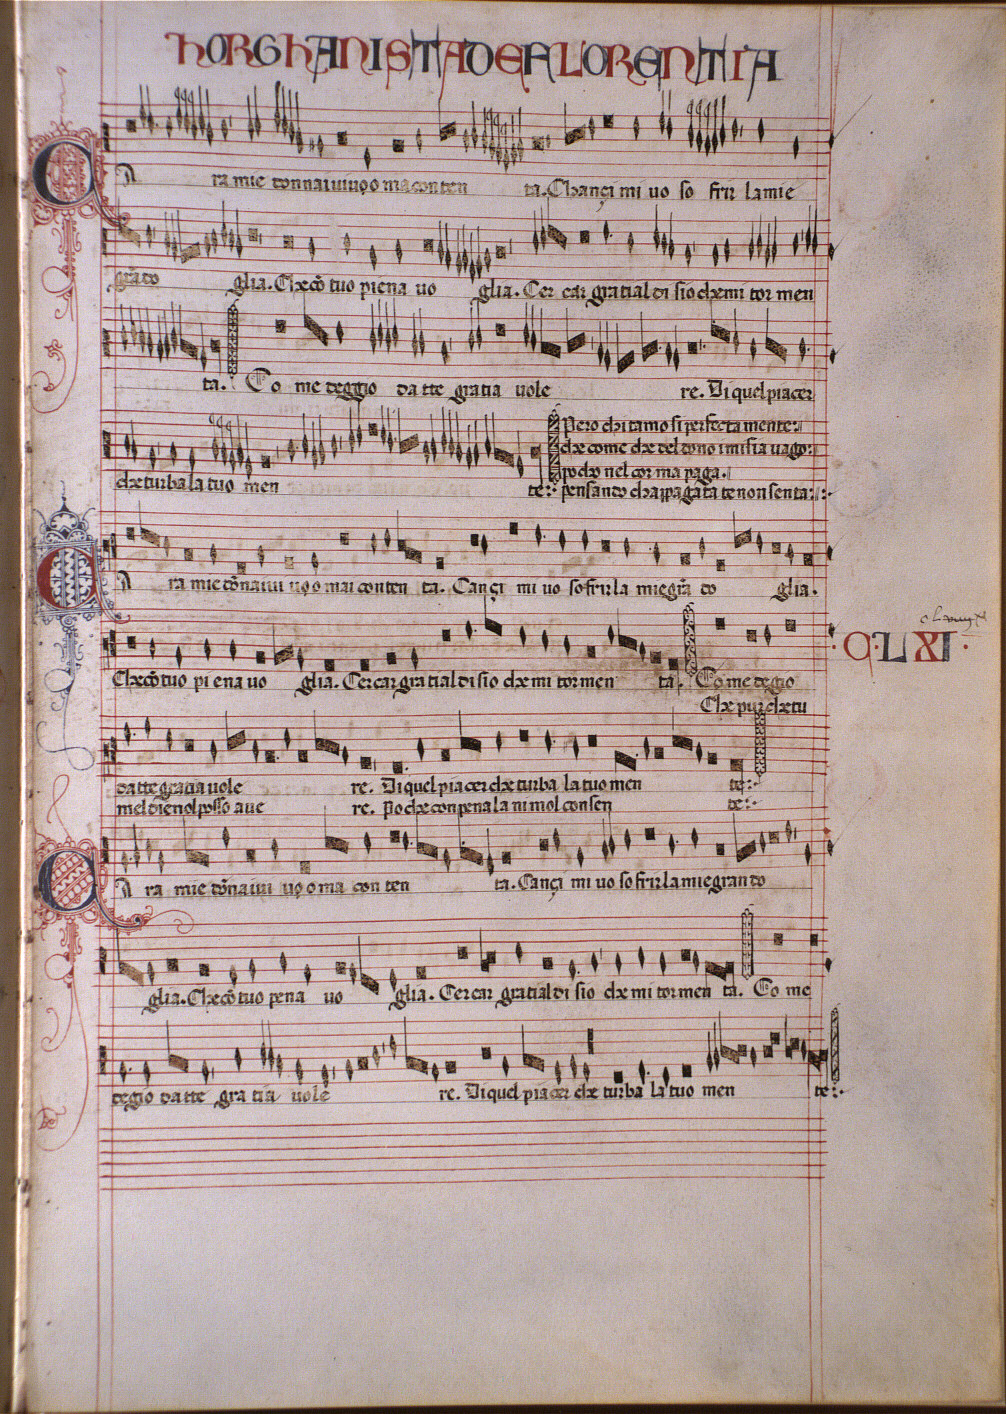 hORGhANISTA DE FLORENTIA
CA ra mie donna i vivo o ma conten ta. Chançi mi uo so frir la mie
gran do glia. Che cō tuo piena uo glia. Cer car gra tia l di sio che mi tor men
ta. Eo me deggio da tte gratia uole re. Di quel piacer
Pero chi tamo si perfecta mente:
che come che del tono i mi sia uago:
po che nel cor ma paga.
che turba la tuo men te: pensando cha ppagata te non senta:
CA ra mie dōna i ui uo o mai conten ta. Cançi mi uo so frir la mie grā do glia.
Che cō tuo pi ena uo glia. Cer car gra tia l di sio che mi tor men ta. Eo me degio
C·L·XI·
Che pur che tu
da tte gratia uole re. Di quel pia cer che turba la tuo men te:
mel die nol posso aue re. Po che con pena la nimol consen te:
CA ra mie dōna i ui uo o ma con ten ta. Cançi mi uo so frir la mie gran do
glia. Che cō tuo pena uo glia. Cer car gra tia l di sio che mi tor men ta. Eo me
degio da tte gra tia uole re. Di quel pia cer che turba la tuo men te: